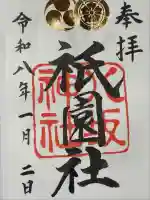 奉拝
祇園社
八坂
神社
令和八年一月二日